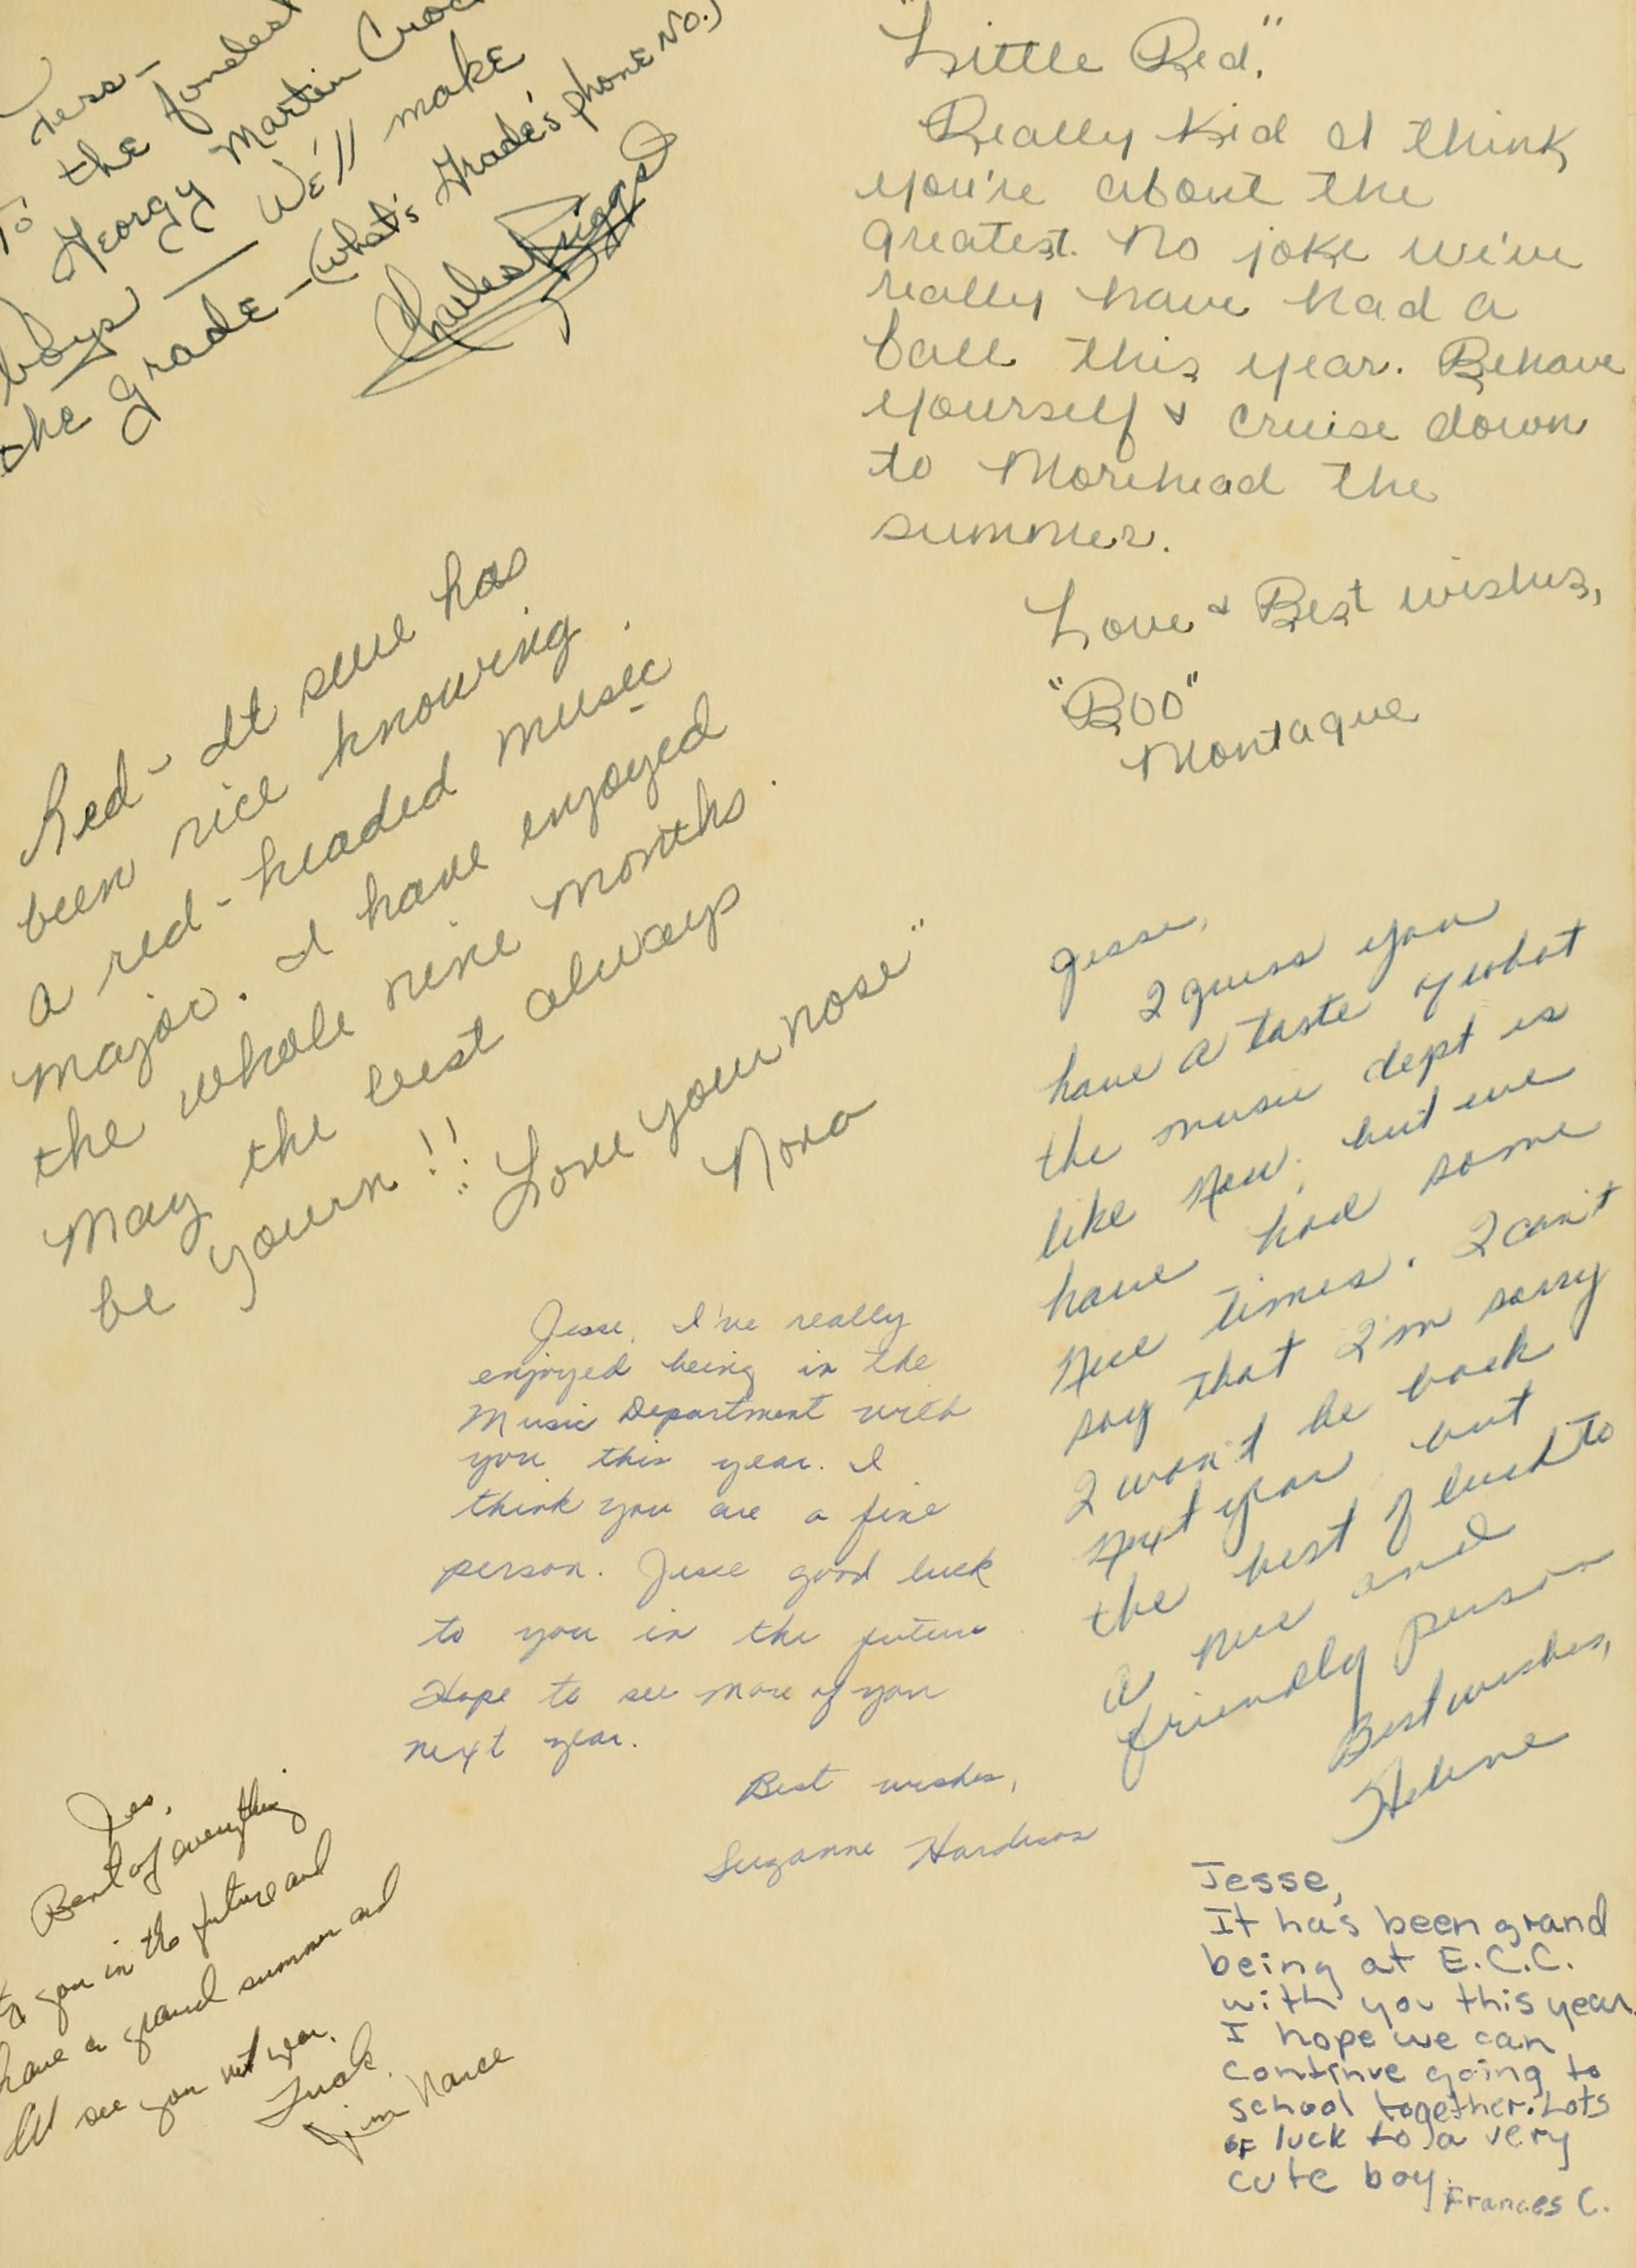 Jess-
To the fondest
Georgy Martin
boys — We'll make
the grade - (What's Grade's phone No.)
Charles Riggs
"Little Red,"
Really kid I think
you're about the
greatest. No joke we've
really have had a
ball this year. Behave
yourself & cruise down
to Morehead the
summer.
Love & Best wishes,
"Boo"
Montague
Red - It sure has
been nice knowing
a red-headed music
major. I have enjoyed
the whole nine months.
May the best always
be yourn!!
"Love your nose"
Nora
Jesse,
I guess you
have a taste of what
the music dept is
like now, but we
have had some
nice times. I can't
say that I'm sorry
I won't be back
next year but
the best of luck to
a nice and
friendly person
Best wishes,
Helene
Jesse, I've really
enjoyed being in the
Music Department with
you this year. I
think you are a fine
person. Jesse good luck
to you in the future
Hope to see more of you
next year.
Best wishes,
Suzanne
Jes,
Best of everything
to you in the future and
have a grand summer and
I'll see you next year.
Luck
Jim Nance
Jesse,
It has been grand
being at E.C.C.
with you this year.
I hope we can
continue going to
school together. Lots
of luck to a very
cute boy.
Frances C.